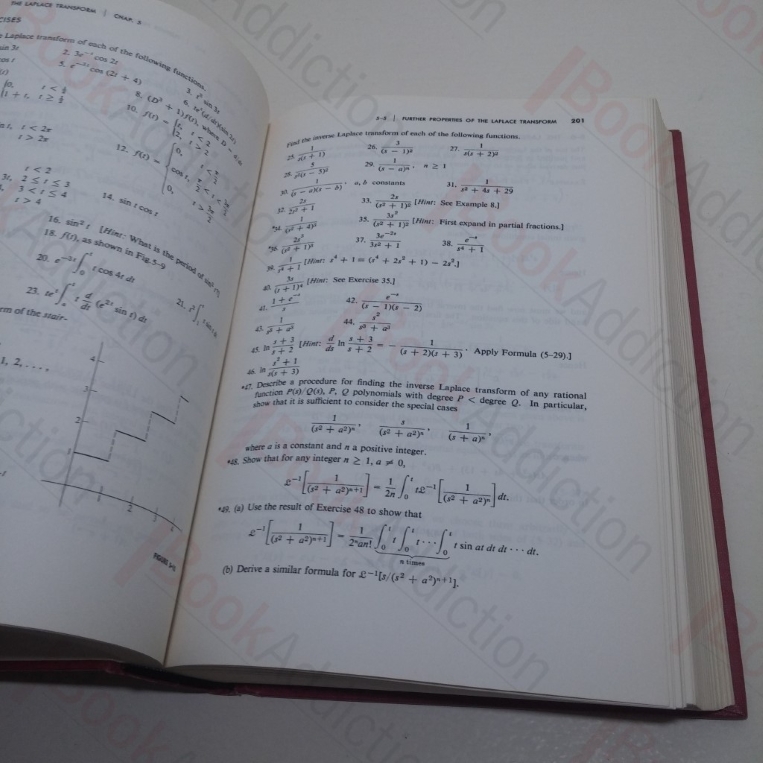 THE LAPLACE TRANSFORM | CHAP. 5
CISES
Laplace transform of each of the following functions.
2. 3e⁻ᵗ cos 2t
cos (2t + 4)
8. (D² + 1)f(t), where D =
10. f(t) =
12. f(t) =
14. sin t cos t
16. sin² t [Hint: What is the period of sin
18. f(t), as shown in Fig. 5-9
20. e⁻²ᵗ ∫₀ᵗ t cos 4t dt
21.
23. te³ᵗ ∫₀ᵗ t d/dt (e²ᵗ sin t) dt
em of the stair-
1, 2, . . . .
5-5 | FURTHER PROPERTIES OF THE LAPLACE TRANSFORM 201
Find the inverse Laplace transform of each of the following functions.
25. 1/s(s + 1) 26. 3/(s − 1)² 27. 1/s(s + 2)²
29. 1/(s − a)ⁿ, n ≥ 1
30. 1/(s − a)(s − b), a, b constants 31. 1/(s² + 4s + 29)
32. 2s/(2s² + 1) 33. 2s/(s² + 1)² [Hint: See Example 8.]
*34. 1/(s² + 4)² 35. 3s²/(s² + 1)² [Hint: First expand in partial fractions.]
*36. 2s³/(s² + 1)³ 37. 3e⁻²ˢ/(3s² + 1) 38. e⁻ˢ/(s⁴ + 1)
39. 1/(s⁴ + 1) [Hint: s⁴ + 1 = (s⁴ + 2s² + 1) − 2s².]
40. 3s/(s + 1)⁴ [Hint: See Exercise 35.]
41. (1 + e⁻ˢ)/s 42. e⁻ˢ/(s − 1)(s − 2)
43. 1/(s³ + a³) 44. s²/(s³ + a³)
45. ln (s + 3)/(s + 2) [Hint: d/ds ln (s + 3)/(s + 2) = − 1/(s + 2)(s + 3). Apply Formula (5–29).]
46. ln (s² + 1)/s(s + 3)
*47. Describe a procedure for finding the inverse Laplace transform of any rational
function P(s)/Q(s), P, Q polynomials with degree P < degree Q. In particular,
show that it is sufficient to consider the special cases
1/(s² + a²)ⁿ, s/(s² + a²)ⁿ, 1/(s + a)ⁿ,
where a is a constant and n a positive integer.
*48. Show that for any integer n ≥ 1, a ≠ 0,
ℒ⁻¹[1/(s² + a²)ⁿ⁺¹] = 1/2n ∫₀ᵗ tℒ⁻¹[1/(s² + a²)ⁿ] dt.
*49. (a) Use the result of Exercise 48 to show that
ℒ⁻¹[1/(s² + a²)ⁿ⁺¹] = 1/2ⁿan! ∫₀ᵗ t ∫₀ᵗ t · · · ∫₀ᵗ t sin at dt dt · · · dt.
n times
(b) Derive a similar formula for ℒ⁻¹[s/(s² + a²)ⁿ⁺¹].
BookAddiction